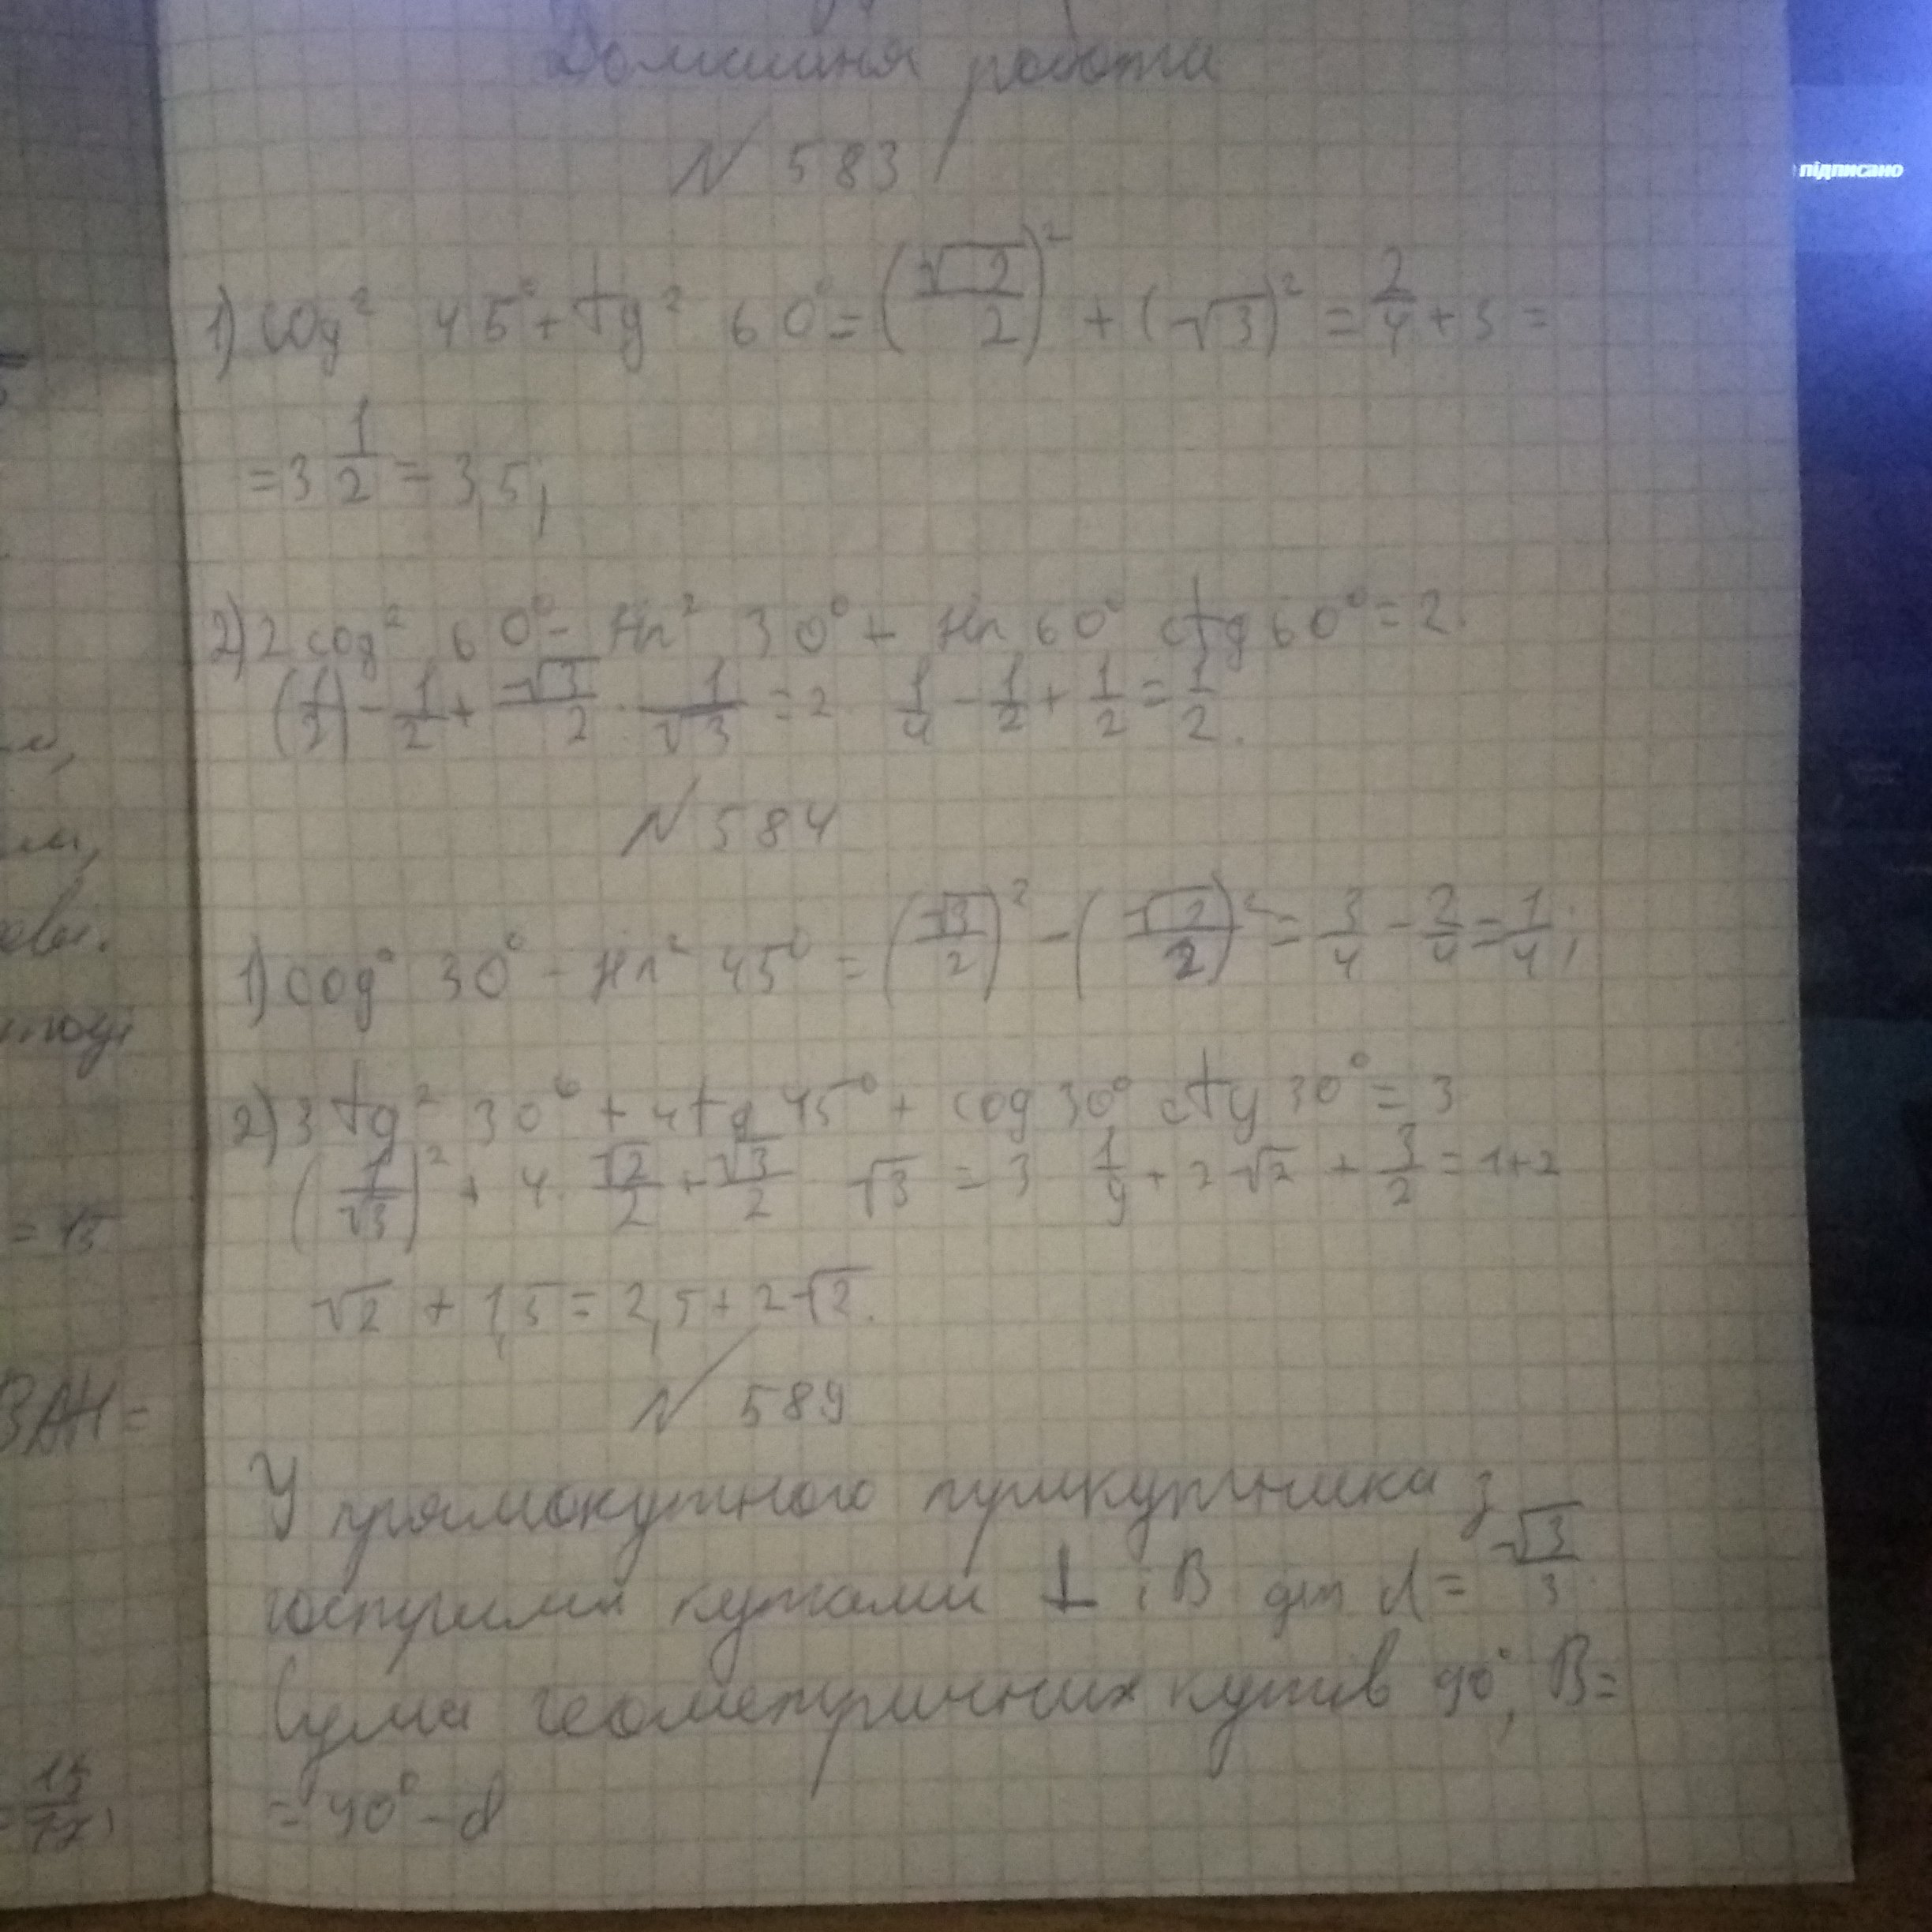 Домашня робота
N 583
1) cos² 45° + tg² 60° = (√2/2)² + (√3)² = 2/4 + 3 =
= 3 1/2 = 3,5;
2) 2 cos² 60° - sin² 30° + sin 60° ctg 60° = 2 ·
(1/2) - 1/2 + √3/2 · 1/√3 = 2 1/4 - 1/2 + 1/2 = 1/2.
N 584
1) cos² 30° - sin² 45° = (√3/2)² - (√2/2)² = 3/4 - 2/4 = 1/4;
2) 3 tg² 30° + 4 tg 45° + cos 30° ctg 30° = 3
(1/√3)² + 4 · √2/2 + √3/2 √3 = 3 1/9 + 2√2 + 3/2 = 1 + 2
√2 + 1,5 = 2,5 + 2√2.
N 589
У прямокутного трикутника з
гострими кутами ⊥ і B d = √3/3
Сума геометричних кутів 90°, B =
= 90° - d
підписано
= 15
BAH =